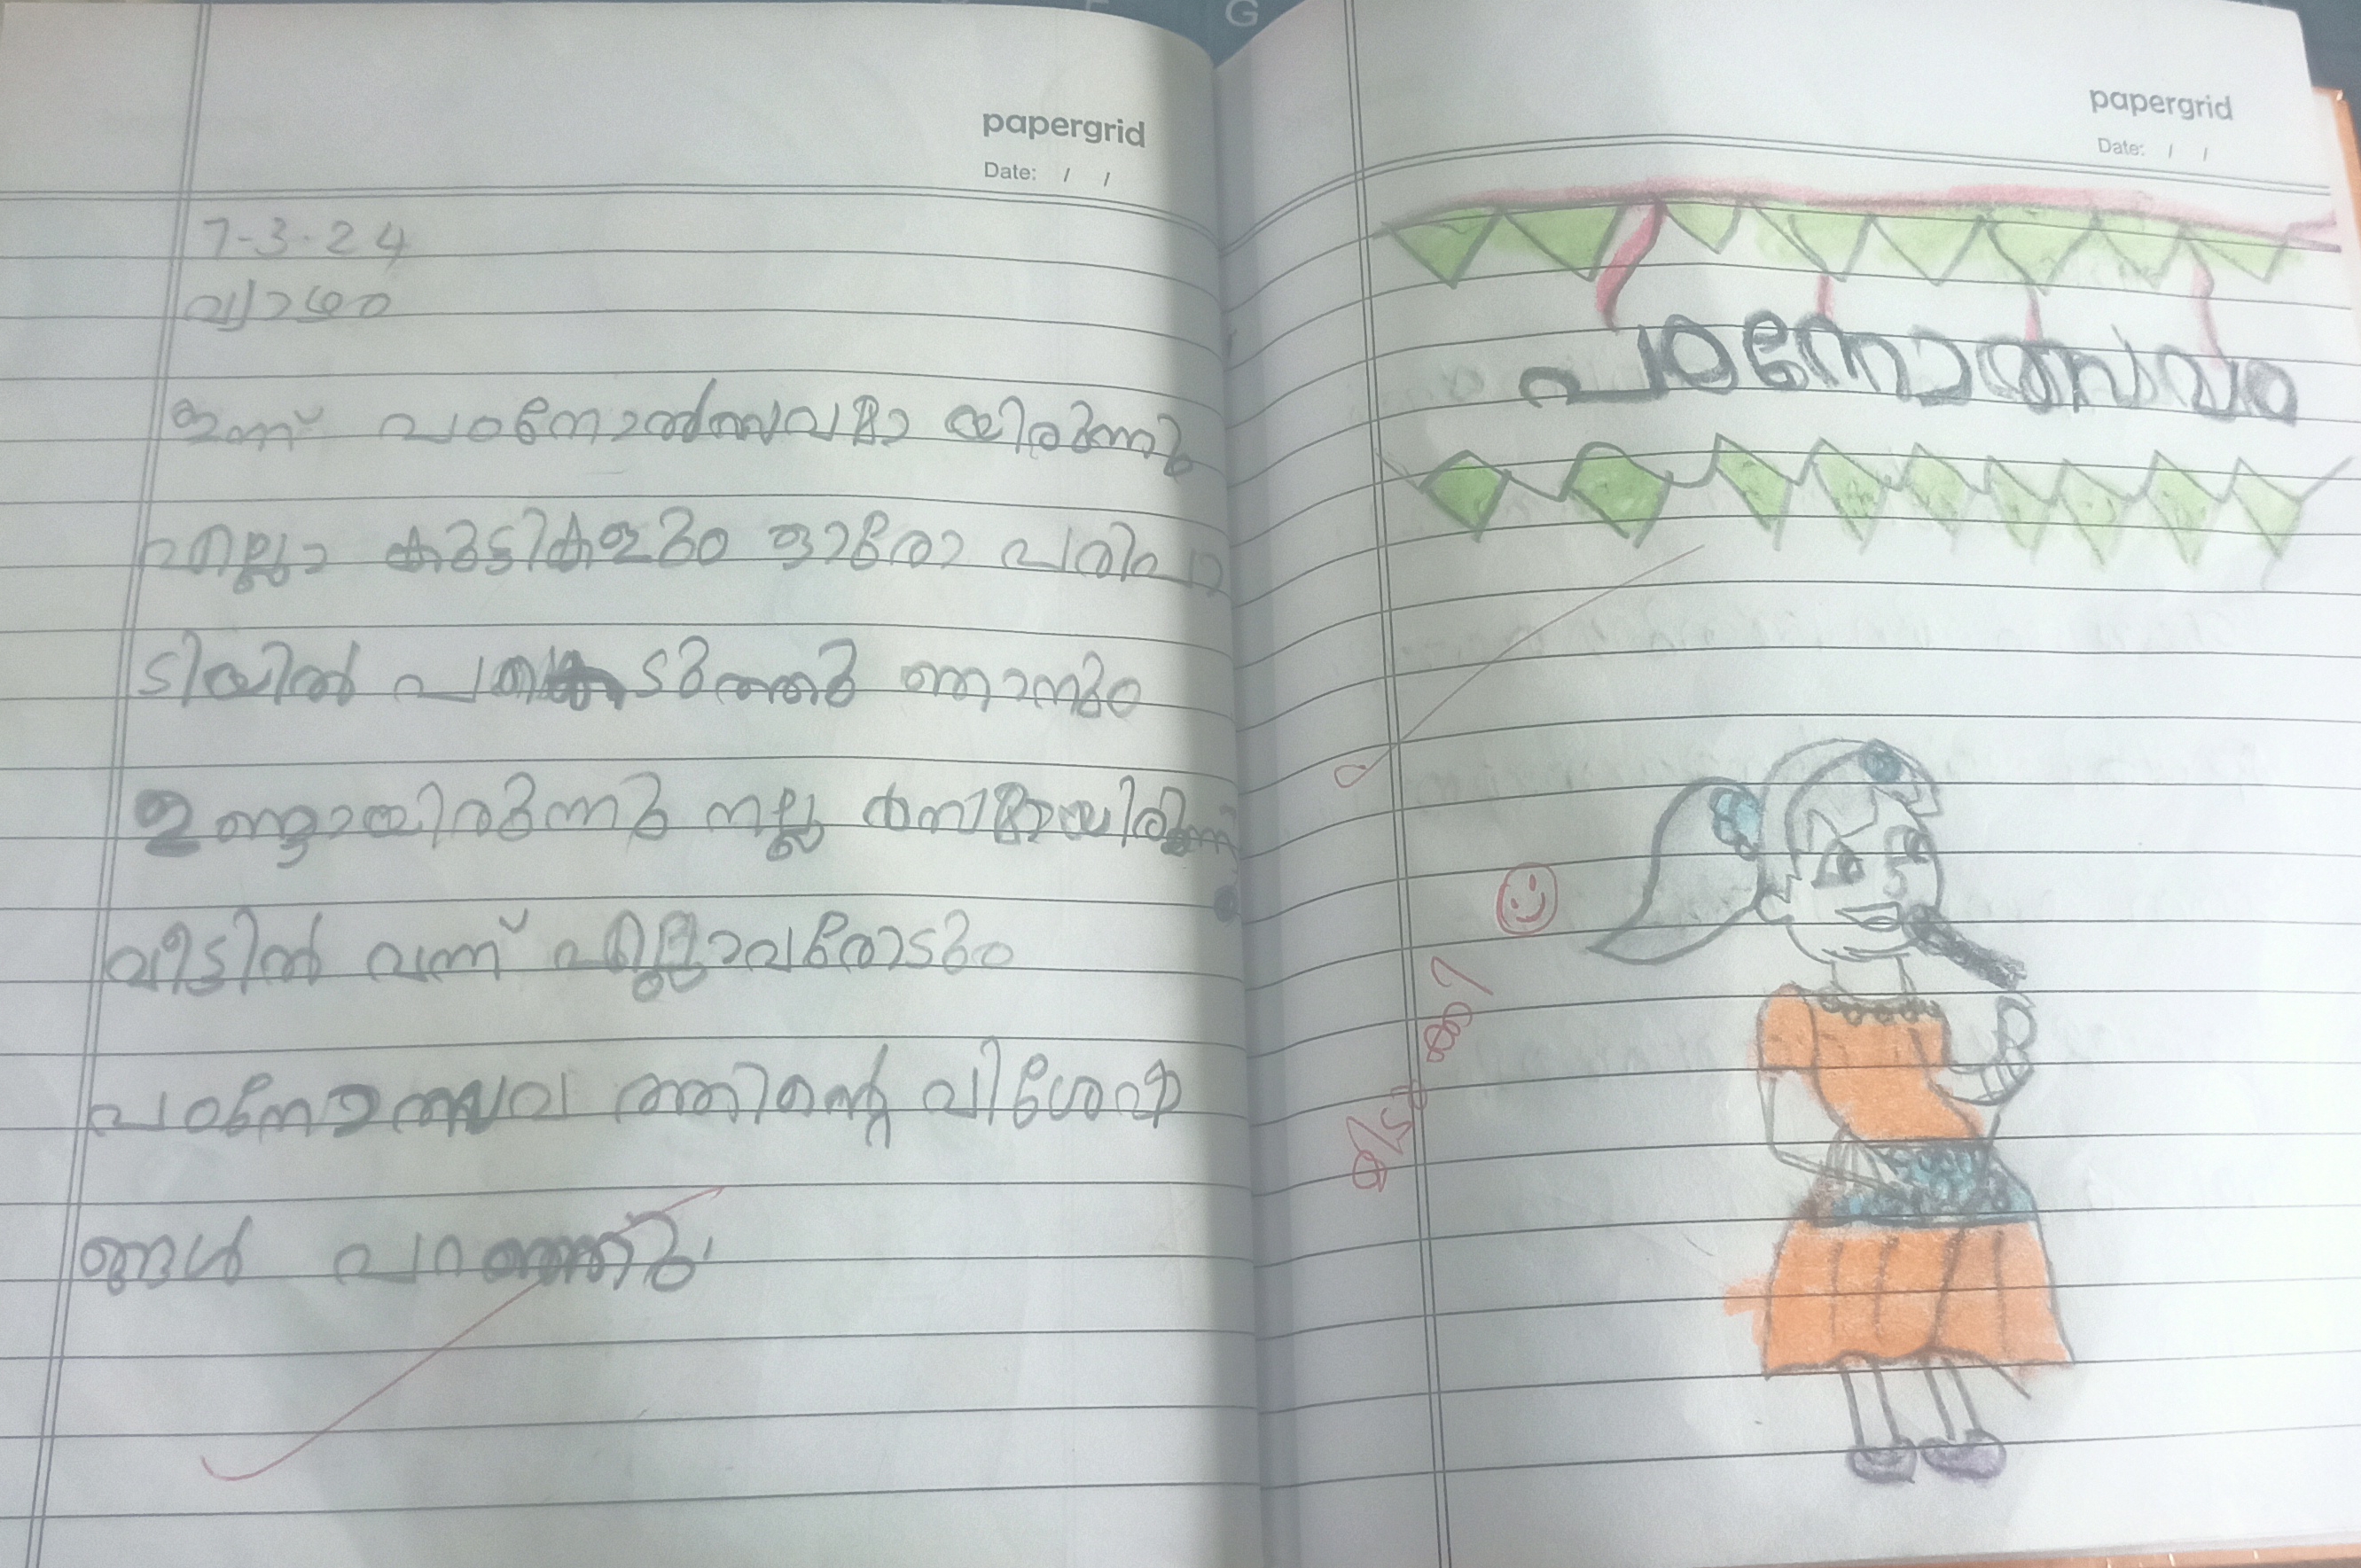 papergrid
Date: / /
7-3-24
വ്യാഴം
ഇന്ന് പഠനോൽസവമാ യിരുന്നു
എല്ലാ കുട്ടികളും ഓരോ പരിപാ
ടിയിൽ പങ്കെടുത്തു ഞാനും
ഉണ്ടായിരുന്നു നല്ല രസമായിരുന്നു
വീട്ടിൽ വന്ന് എല്ലാവരോടും
പഠനോത്സവ ത്തിന്റെ വിശേഷ
ങ്ങൾ പറഞ്ഞു.
papergrid
Date: / /
പഠനോത്സവം